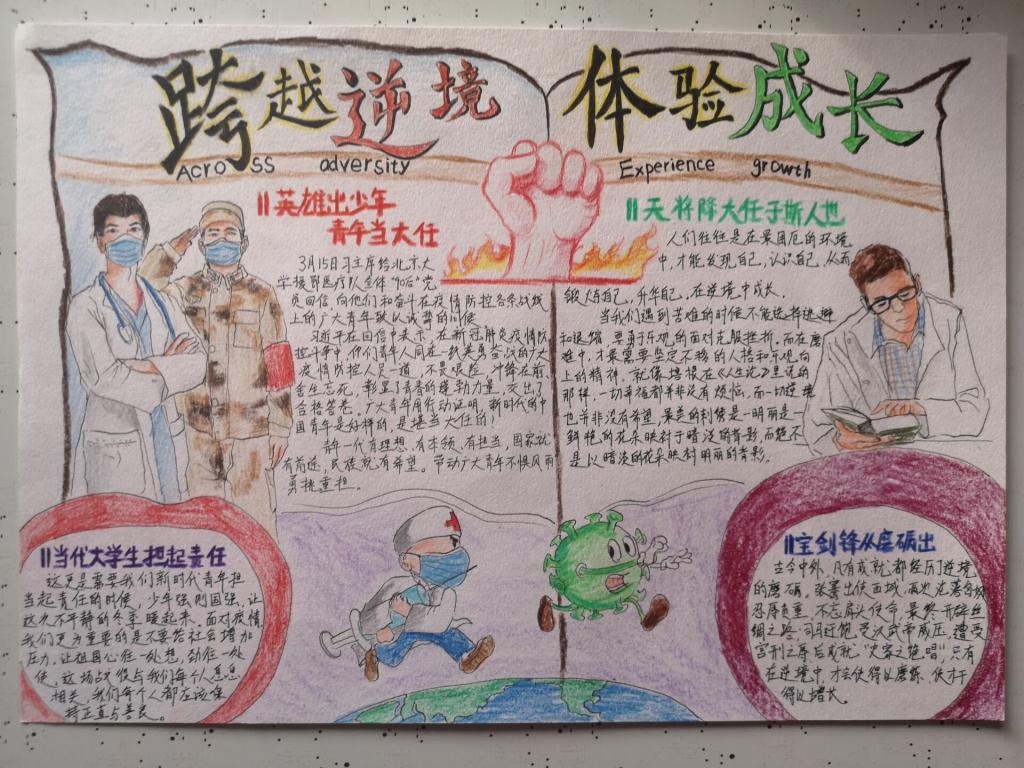 跨越逆境 体验成长
Across adversity Experience growth
英雄出少年
青年当大任
3月15日习主席给北京大
学援鄂医疗队全体"90后"党
员回信,向他们和奋斗在疫情防控各条战线
上的广大青年致以诚挚的问候
习近平在回信中表示,在新冠肺炎疫情防
控斗争中,你们青年人同在一线英勇奋战的广大
疫情防控人员一道,不畏艰险、冲锋在前、
舍生忘死,彰显了青春的蓬勃力量,交出了
合格答卷。广大青年用行动证明,新时代的中
国青年是好样的,是堪当大任的!
青年一代有理想、有本领、有担当,国家就
有前途,民族就有希望。带动广大青年不惧风雨
勇挑重担.
天将降大任于斯人也
人们往往是在最困厄的环境
中,才能发现自己,认识自己,从而
锻炼自己,升华自己,在逆境中成长.
当我们遇到苦难的时候不能选择逃避
和退缩,要勇于乐观的面对克服挫折.而在磨
难中,才最需要坚定不移的人格和乐观向
上的精神.就像培根在《人生论》里说的
那样,一切幸福都并非没有烦恼,而一切逆境
也并非没有希望,最美的刺绣是一明丽是一
鲜艳的花朵映衬于暗淡的背影,而绝不
是以暗淡的花朵映衬明丽的背影。
当代大学生担起责任
这更是需要我们新时代青年担
当起责任的时候,少年强则国强,让
这次不平静的冬季暖起来.面对疫情,
我们更为重要的是不要给社会增加
压力,让祖国心往一处想,劲往一处
使,这场战役与我们每个人息息
相关,我们每个人都应该保
持正直与善良.
宝剑锋从磨砺出
古今中外,凡有成就,都经历逆境
的磨砺.张骞出使西域,两次
忍辱负重,不忘肩头使命,最终开辟丝
绸之路.司马迁饱受汉武帝威压,遭受
宫刑之辱后成就"史家之绝唱",只有
在逆境中,才会使得以磨练,使才干
得以增长.